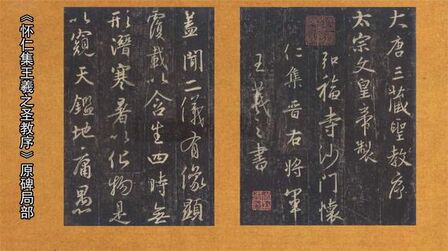 《怀仁集王羲之圣教序》原碑局部
大唐三藏聖教序
太宗文皇帝製
弘福寺沙門懷
仁集晉右將軍
王羲之書
蓋聞二儀有像顯
覆載以含生四時無
形潛寒暑以化物是
以窺天鑑地庸愚